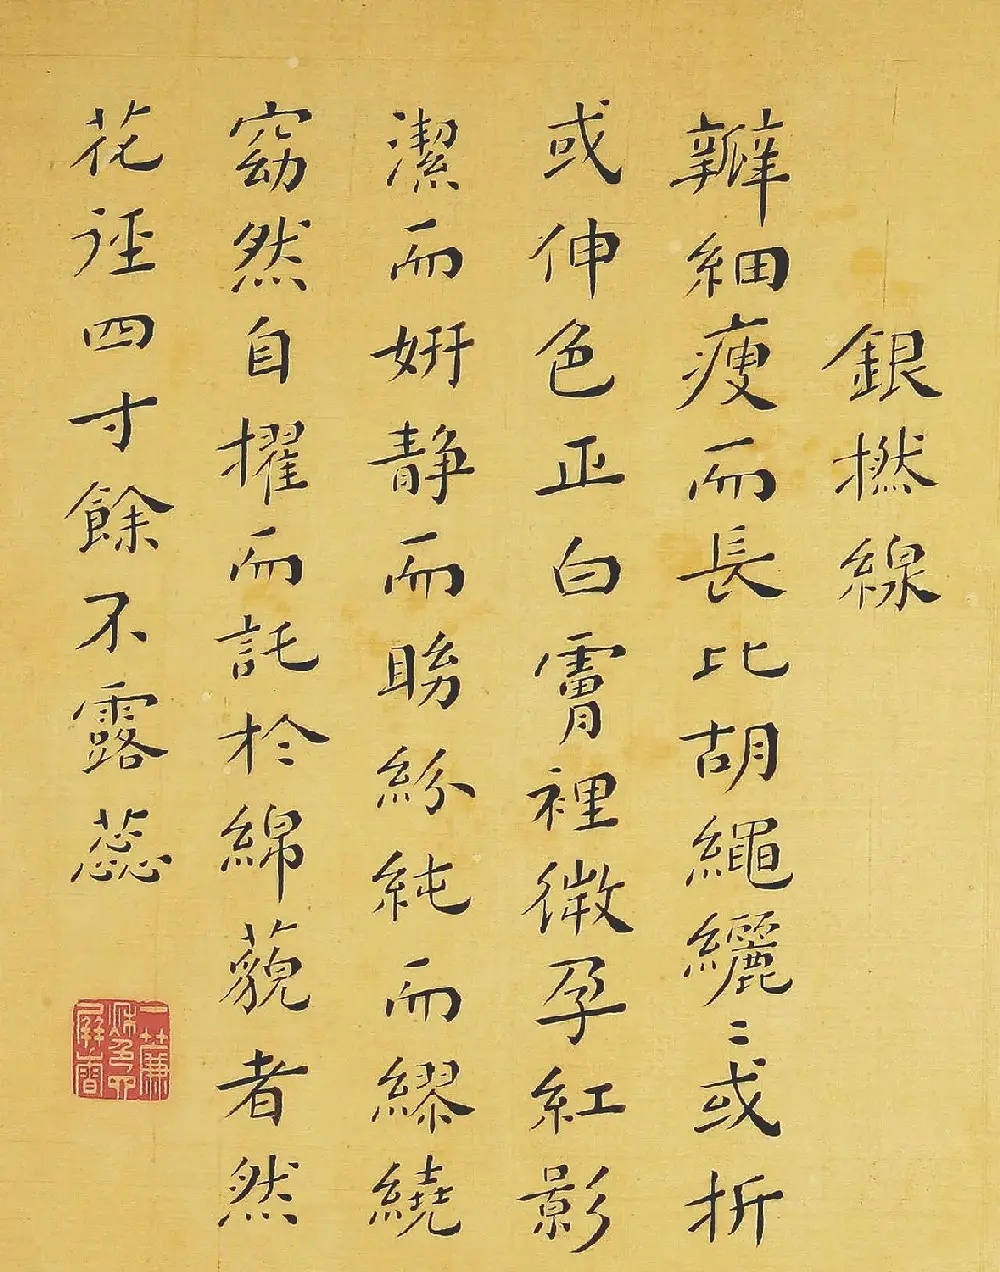 銀撚線
瓣細瘦而長比胡繩纚〻或折
或伸色正白膚裡微孕紅影
潔而妍静而眑紛純而繆繞
窈然自擢而託於綿藐者然
花徑四寸餘不露蕊